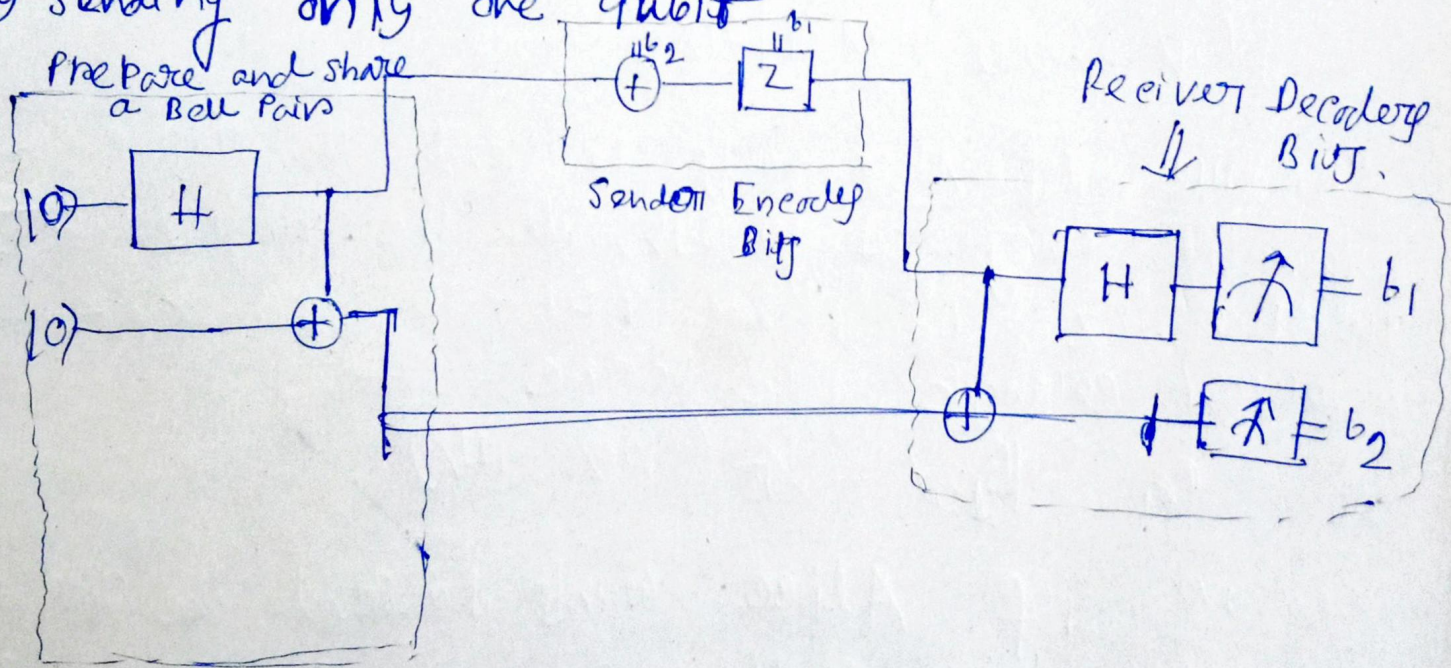 sending only one qubit
Prepare and share
a Bell Pairs
|0⟩
H
|0⟩
b2
b1
Z
Sender Encodes
Bits
Reciver Decoders
Bits.
H
b1
b2